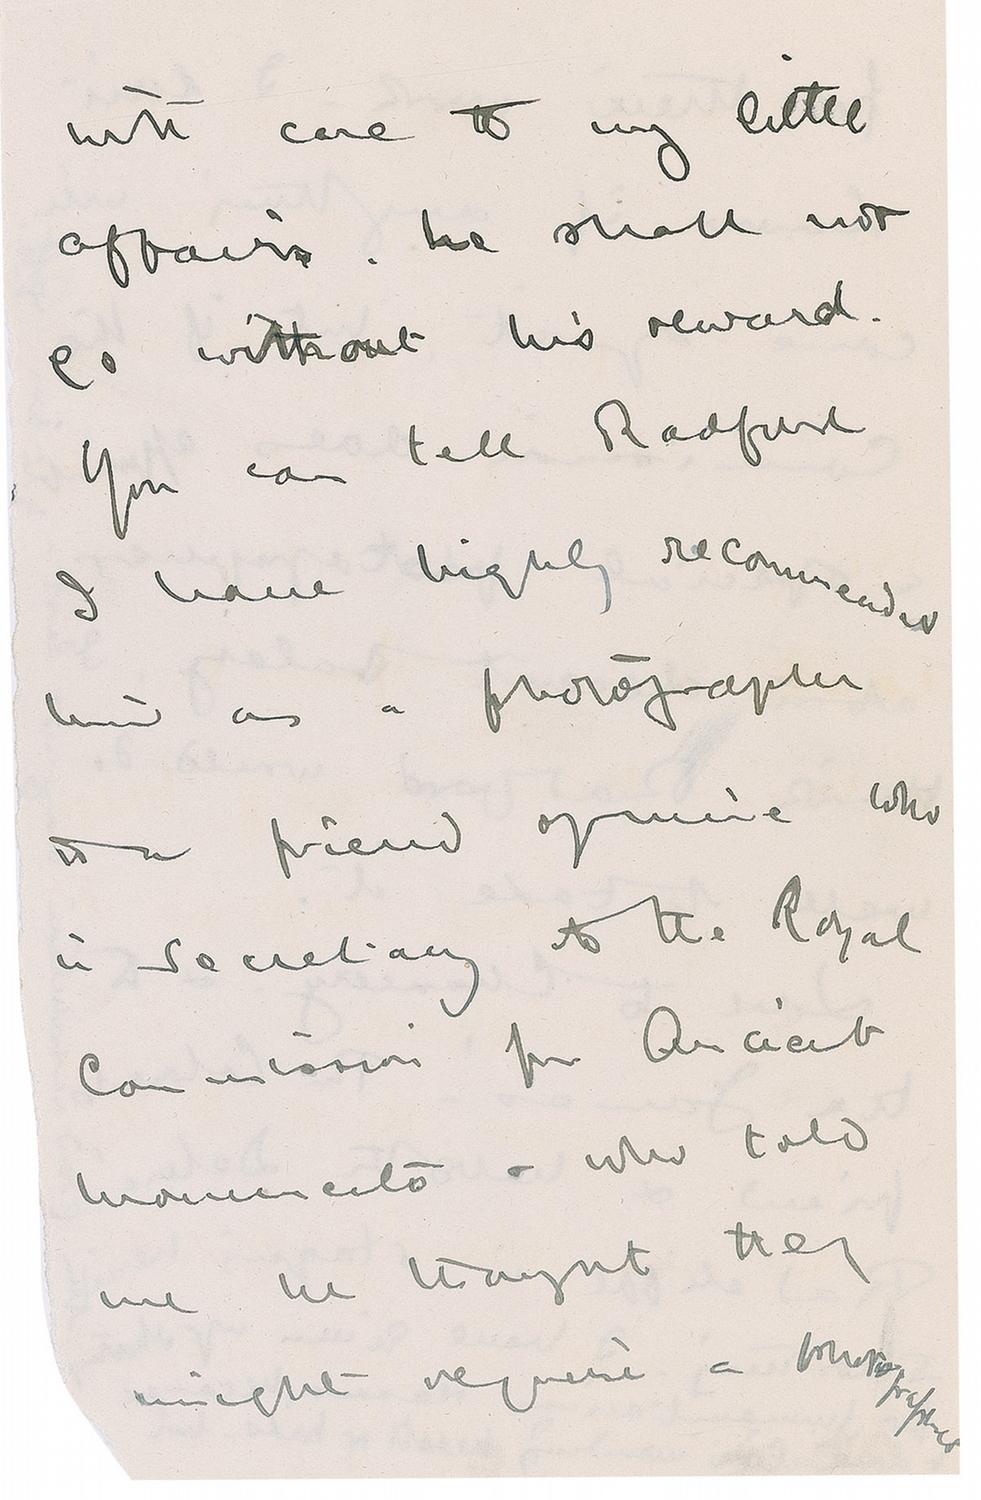 with care to my little
affairs. he shall not
go without his reward.
You can tell Radford
I have highly recommended
him as a photographer
to a friend of mine who
is Secretary to the Royal
Commission for Ancient
Monuments - who told
me he thought they
might require a photographer